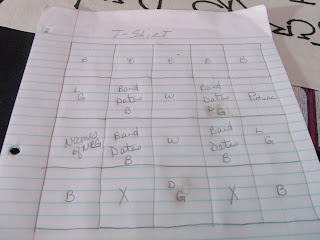 T-Shirt
B B B B B
L G Band Dates B W Band Dates G Picture
Name of NRG Band Dates B W Band Dates B L G
B X D G X B